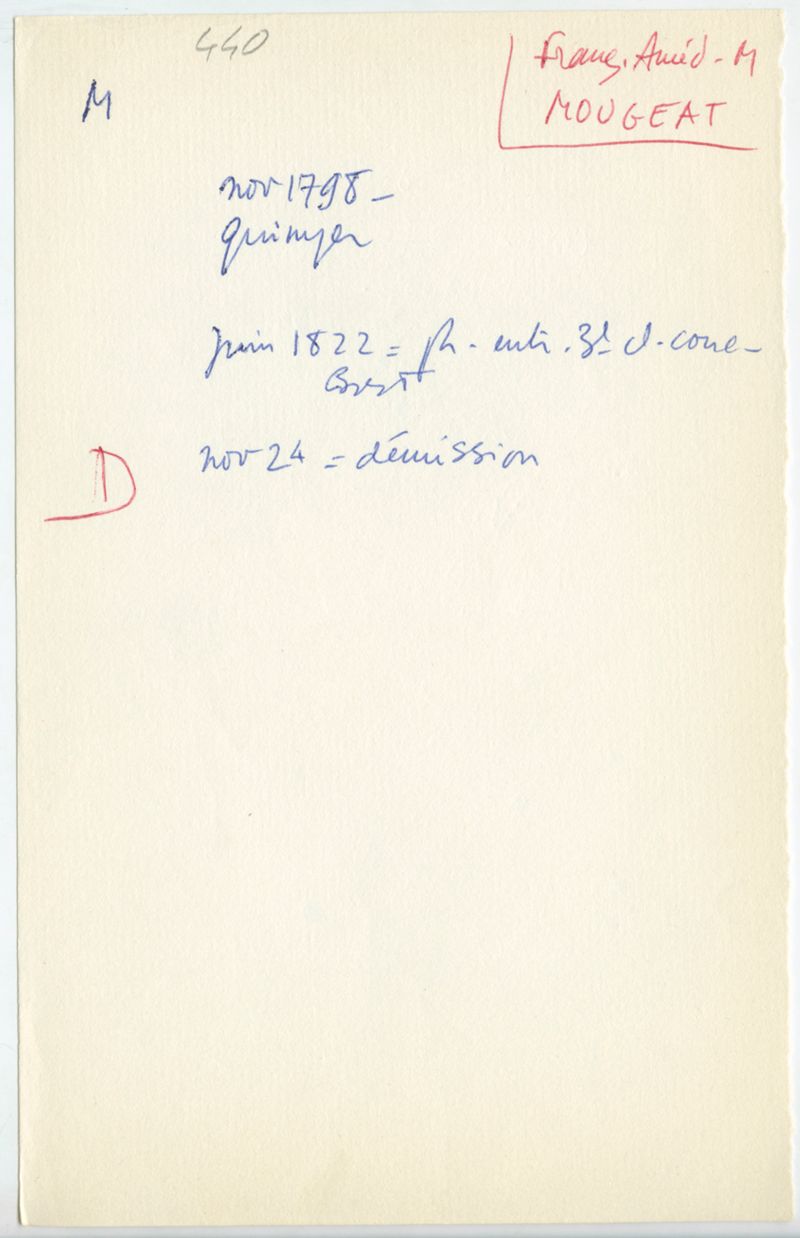 440
Franç. Améd - M
MOUGEAT
M
nov 1798 -
Quimper
juin 1822 = ph. entr. 3e cl. conc-
Brest
nov 24 = démission
D